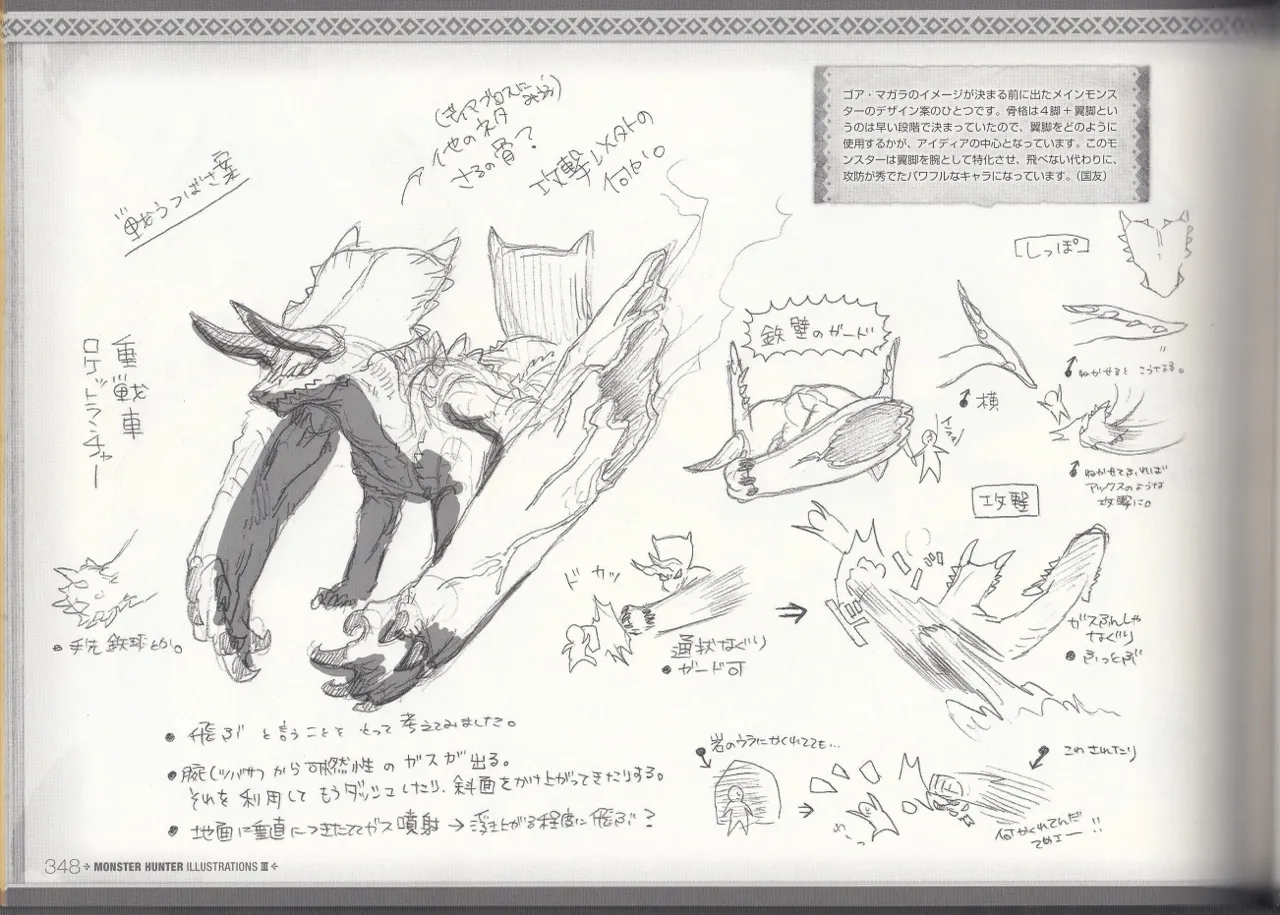 ゴア・マガラのイメージが決まる前に出たメインモンス
ターのデザイン案のひとつです。骨格は4脚+翼脚とい
うのは早い段階で決まっていたので、翼脚をどのように
使用するかが、アイディアの中心となっています。このモ
ンスターは翼脚を腕として特化させ、飛べない代わりに、
攻防が秀でたパワフルなキャラになっています。(国友)
戦うつばさ案
他のネタ
さるの骨?
攻撃レスタトの
何か。
重戦車
ロケットランチャー
[しっぽ]
鉄壁のガード
横
ねかせるとこうなる。
イラッ
ねかせてふれば
アックスのような
攻撃に。
攻撃
ドカッ
通状なぐり
●ガード可
ガスふんしゃ
なぐり
●ふっとぶ
●手先鉄球とか。
●飛ぶと言うことをとって考えてみました。
●腕(ツバサ)から可燃性のガスが出る。
それを利用してもうダッシュしたり、斜面をかけ上がってきたりする。
●地面に垂直につきたててガス噴射→浮き上がる程度に飛ぶ?
●岩のウラにかくれてても…
こわされたり
何かくれてんだ
てめエー!!
348 MONSTER HUNTER ILLUSTRATIONS III